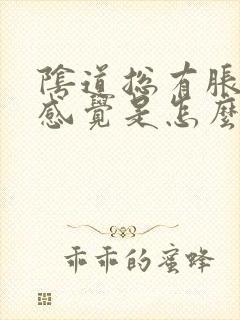 陰道總有脹
感覺是怎麼
乖乖的蜜蜂